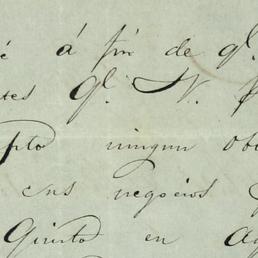 é á fin de ql.
tes ql. N.
pto ningun ob
sus negocios
Quinto en Ag